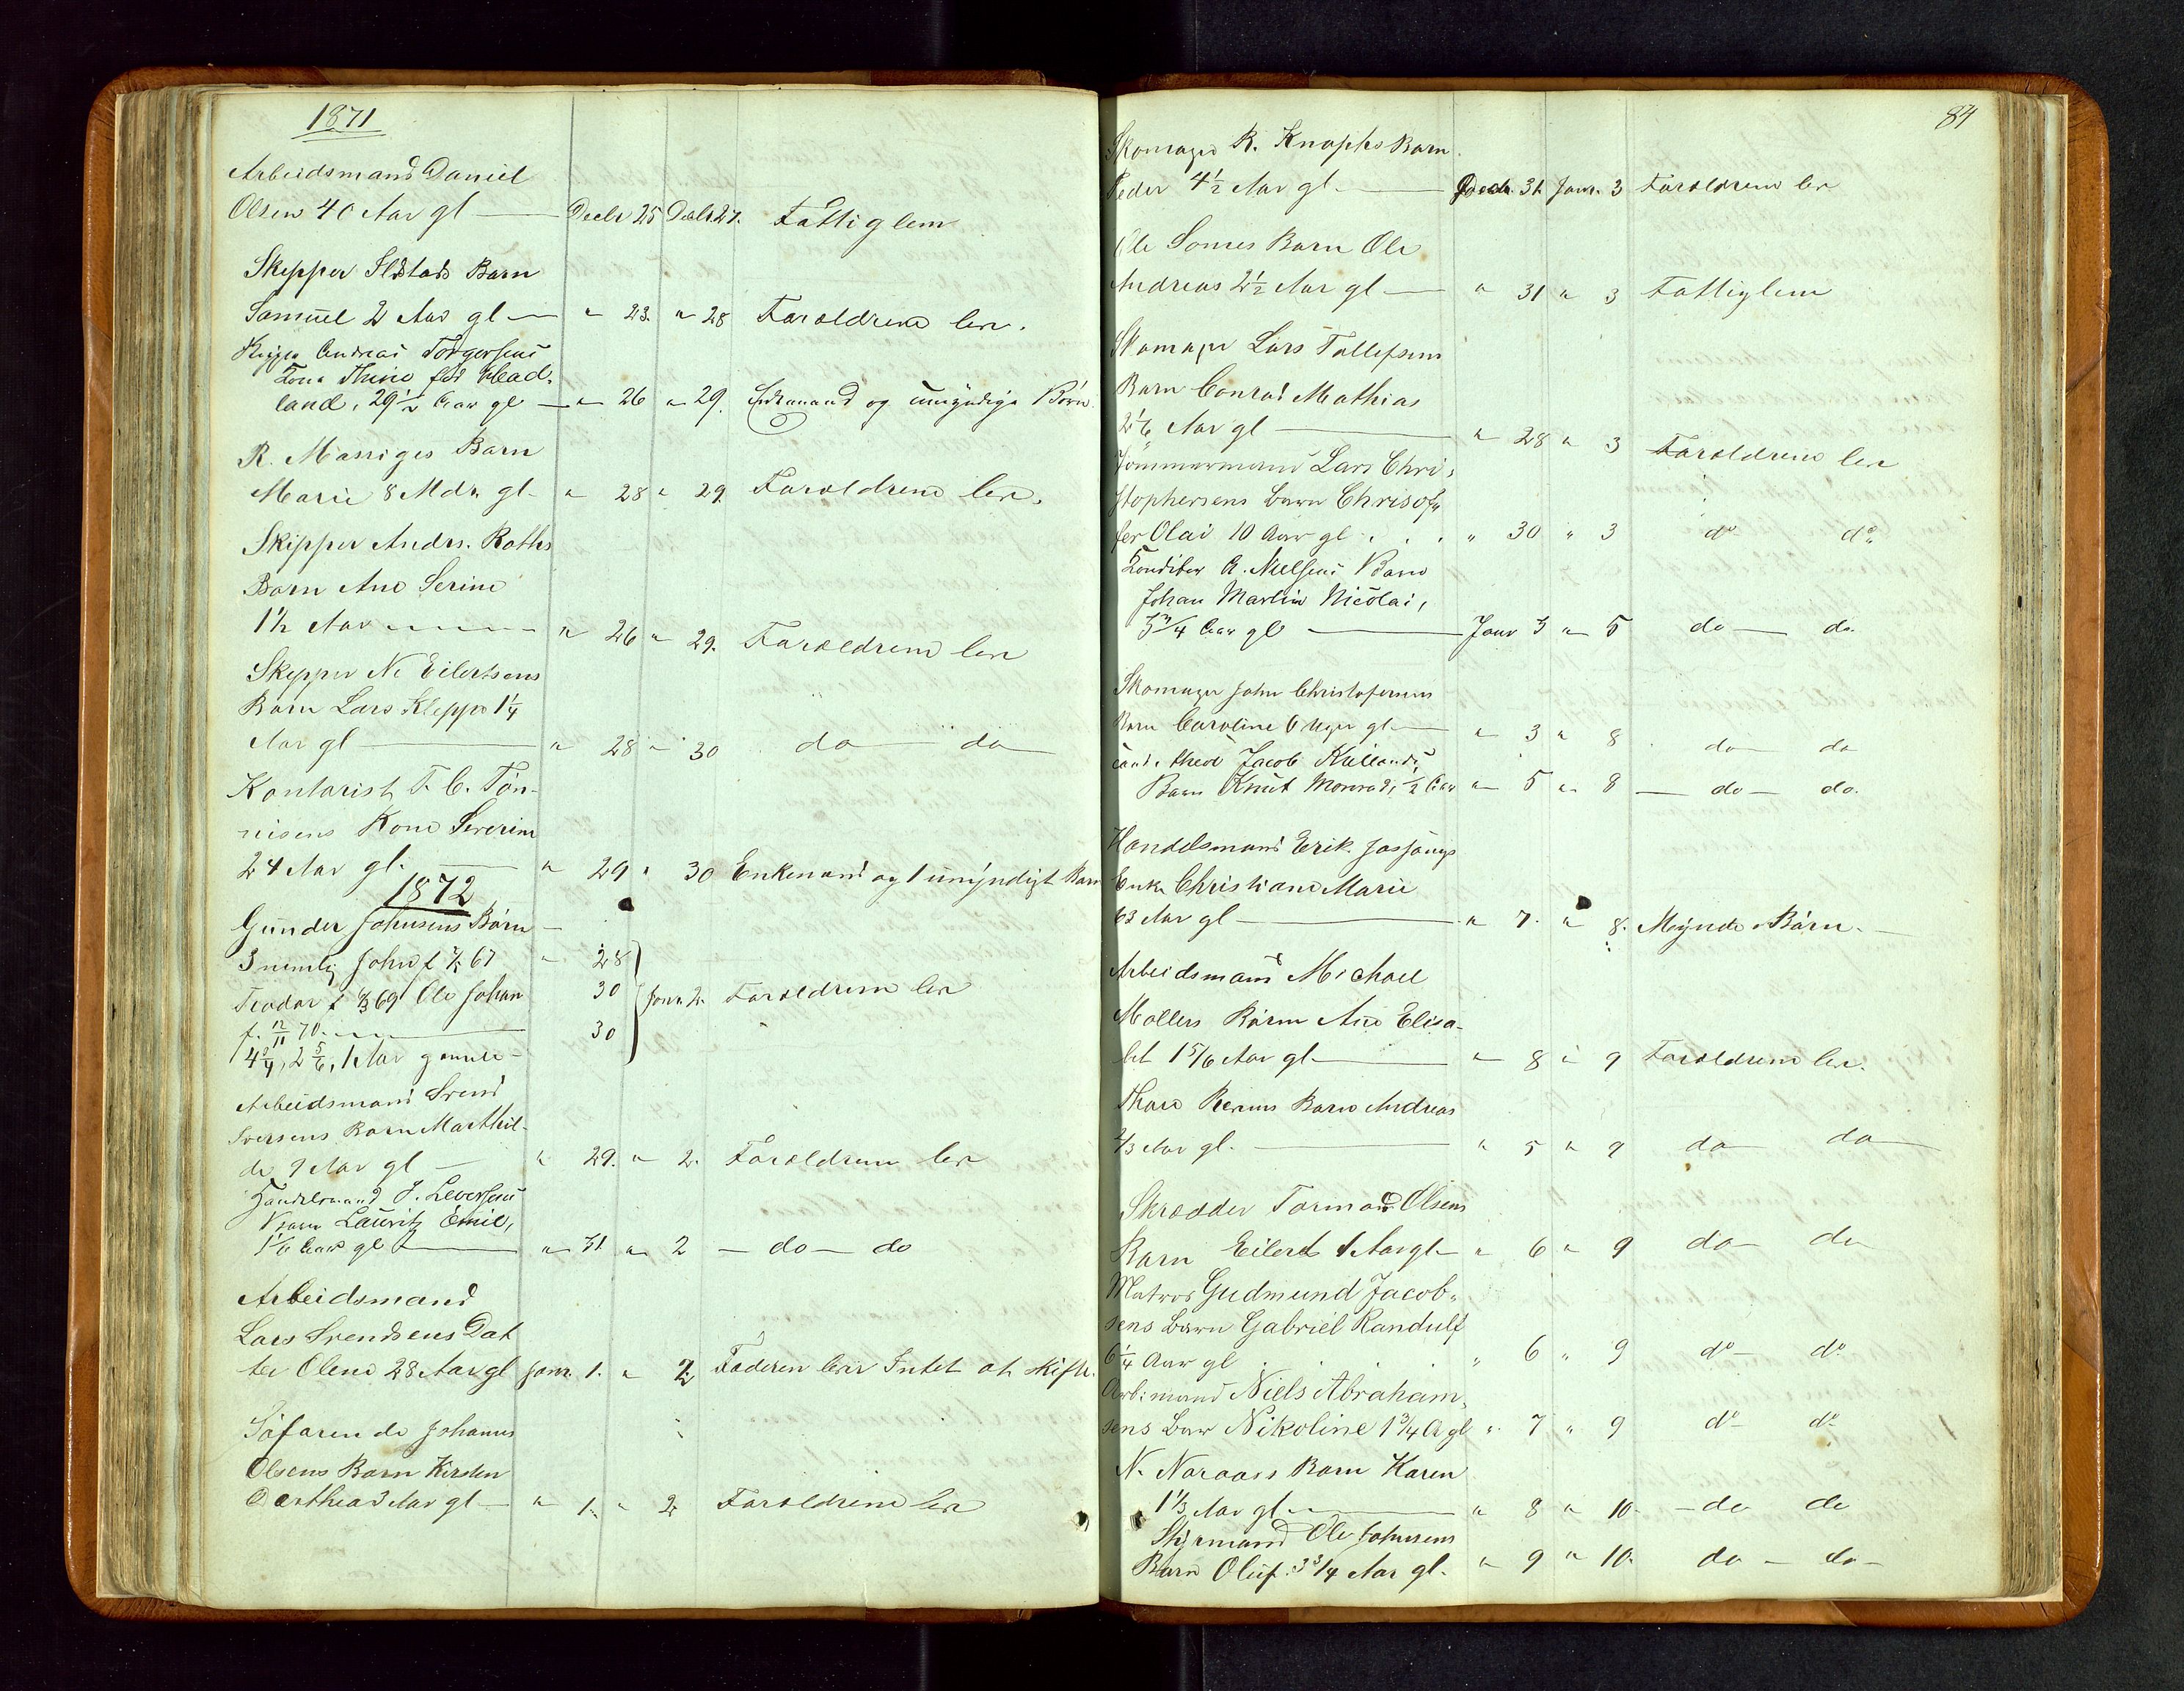 1871
Arbeidsmand Daniel
Olsen 40 Aar gl — Decbr 25 Decbr 27. Fattiglem
Skipper Barn
Samuel 2 Aar gl — " 23. " 28 Foroldrene lever.
Skipper Andreas Torgersens
Kone Thine fød Aad-
land, 29½ Aar gl — " 26 " 29. Enkemand og umyndige Børn.
R. Barn
Marie 8 Mdr gl. " 28 " 29 Foroldrene lever.
Skipper Andrs. Roths
Barn Ane Serine
1½ Aar " 26 " 29. Foroldrene lever
Skipper N. Eilertsens
Barn Lars Kleppe 1¼
Aar gl — " 28 " 30 do — do
Kontorist T. C. Tøn-
nisens Kone Severine
24 Aar gl. — " 29 " 30 Enkemand og 1 umyndigt Barn
1872
Gunder Johnsens Børn —
3 nemlig John f 67 " 28
Teodor f 69 Ole Johan 30 Janr. 2. Foroldrene lever
f. 12/11 70. 30
4¾, 2 5/6, 1 Aar gamle —
Arbeidsmand Svend
Iversens Barn Marthil-
de 9 Aar gl — " 29. " 2. Foroldrene lever
Handelsmand J. Zeversens
Barn Lauritz Emil,
1 1/6 Aar gl — " 31. " 2 — do — do
Arbeidsmand
Lars Svendsens Dat
ter Olene 28 Aar gl Janr. 1. " 2 Faderen lever Intet at skifte.
Søfarende Johannes
Olsens Barn Kirsten
Dorthea 3 Aar gl — " 1. " 2 Foroldrene lever
84
Skomager R. Knophs Barn
Peder 4½ Aar gl. — Decbr. 31. Janr. 3 Foroldrene lever
Ole Somes Barn Ole
Andreas 2½ Aar gl — " 31 " 3 Fattiglem
Skomager Lars Tollefsens
Barn Conrad Mathias
2 1/6 Aar gl — " 28 " 3 Foroldrene lever
Tømmermand Lars Chri-
stophersens Barn Chrisof-
fer Olai 10 Aar gl . . . " 30 " 3 do do
Konditor A. Nielsens Barn
Johan Martin Nicolai,
3¾ Aar gl — Janr 3 " 5 do — do.
Skomager John Christofersens
Barn Caroline 6 Uger gl — " 3 " 8 do do
Cand. theol Jacob Kiellands
Barn Knut Monrad, ½ Aar " 5 " 8 — do — do.
Handelsmand Erik
Enke Christiane Marie
63 Aar gl — " 7. " 8. Myndige Børn. —
Arbeidsmand Michael
Møllers Barn Ane Elisa-
bet 1 5/6 Aar gl — " 8 " 9 Foroldrene lever.
Thore Barn Andreas
2/3 Aar gl. — " 5 " 9 do do
Skrædder Tormod Olsens
Barn Eilert 1 Aar gl — " 6 " 9 do do
Matros Gudmund Jacob-
sens Barn Gabriel Randulf
6¼ Aar gl . . . " 6 " 9 do — do
Arb:mand Niels Abraham-
sens Barn Nikoline 1¾ A gl " 7 " 9 do do
N. Naraas Barn Karen
1 1/3 Aar gl — " 8 " 10. — do do
Styrmand Ole Johnsens
Barn Oluf. 3¾ Aar gl. " 9 " 10. do — do —